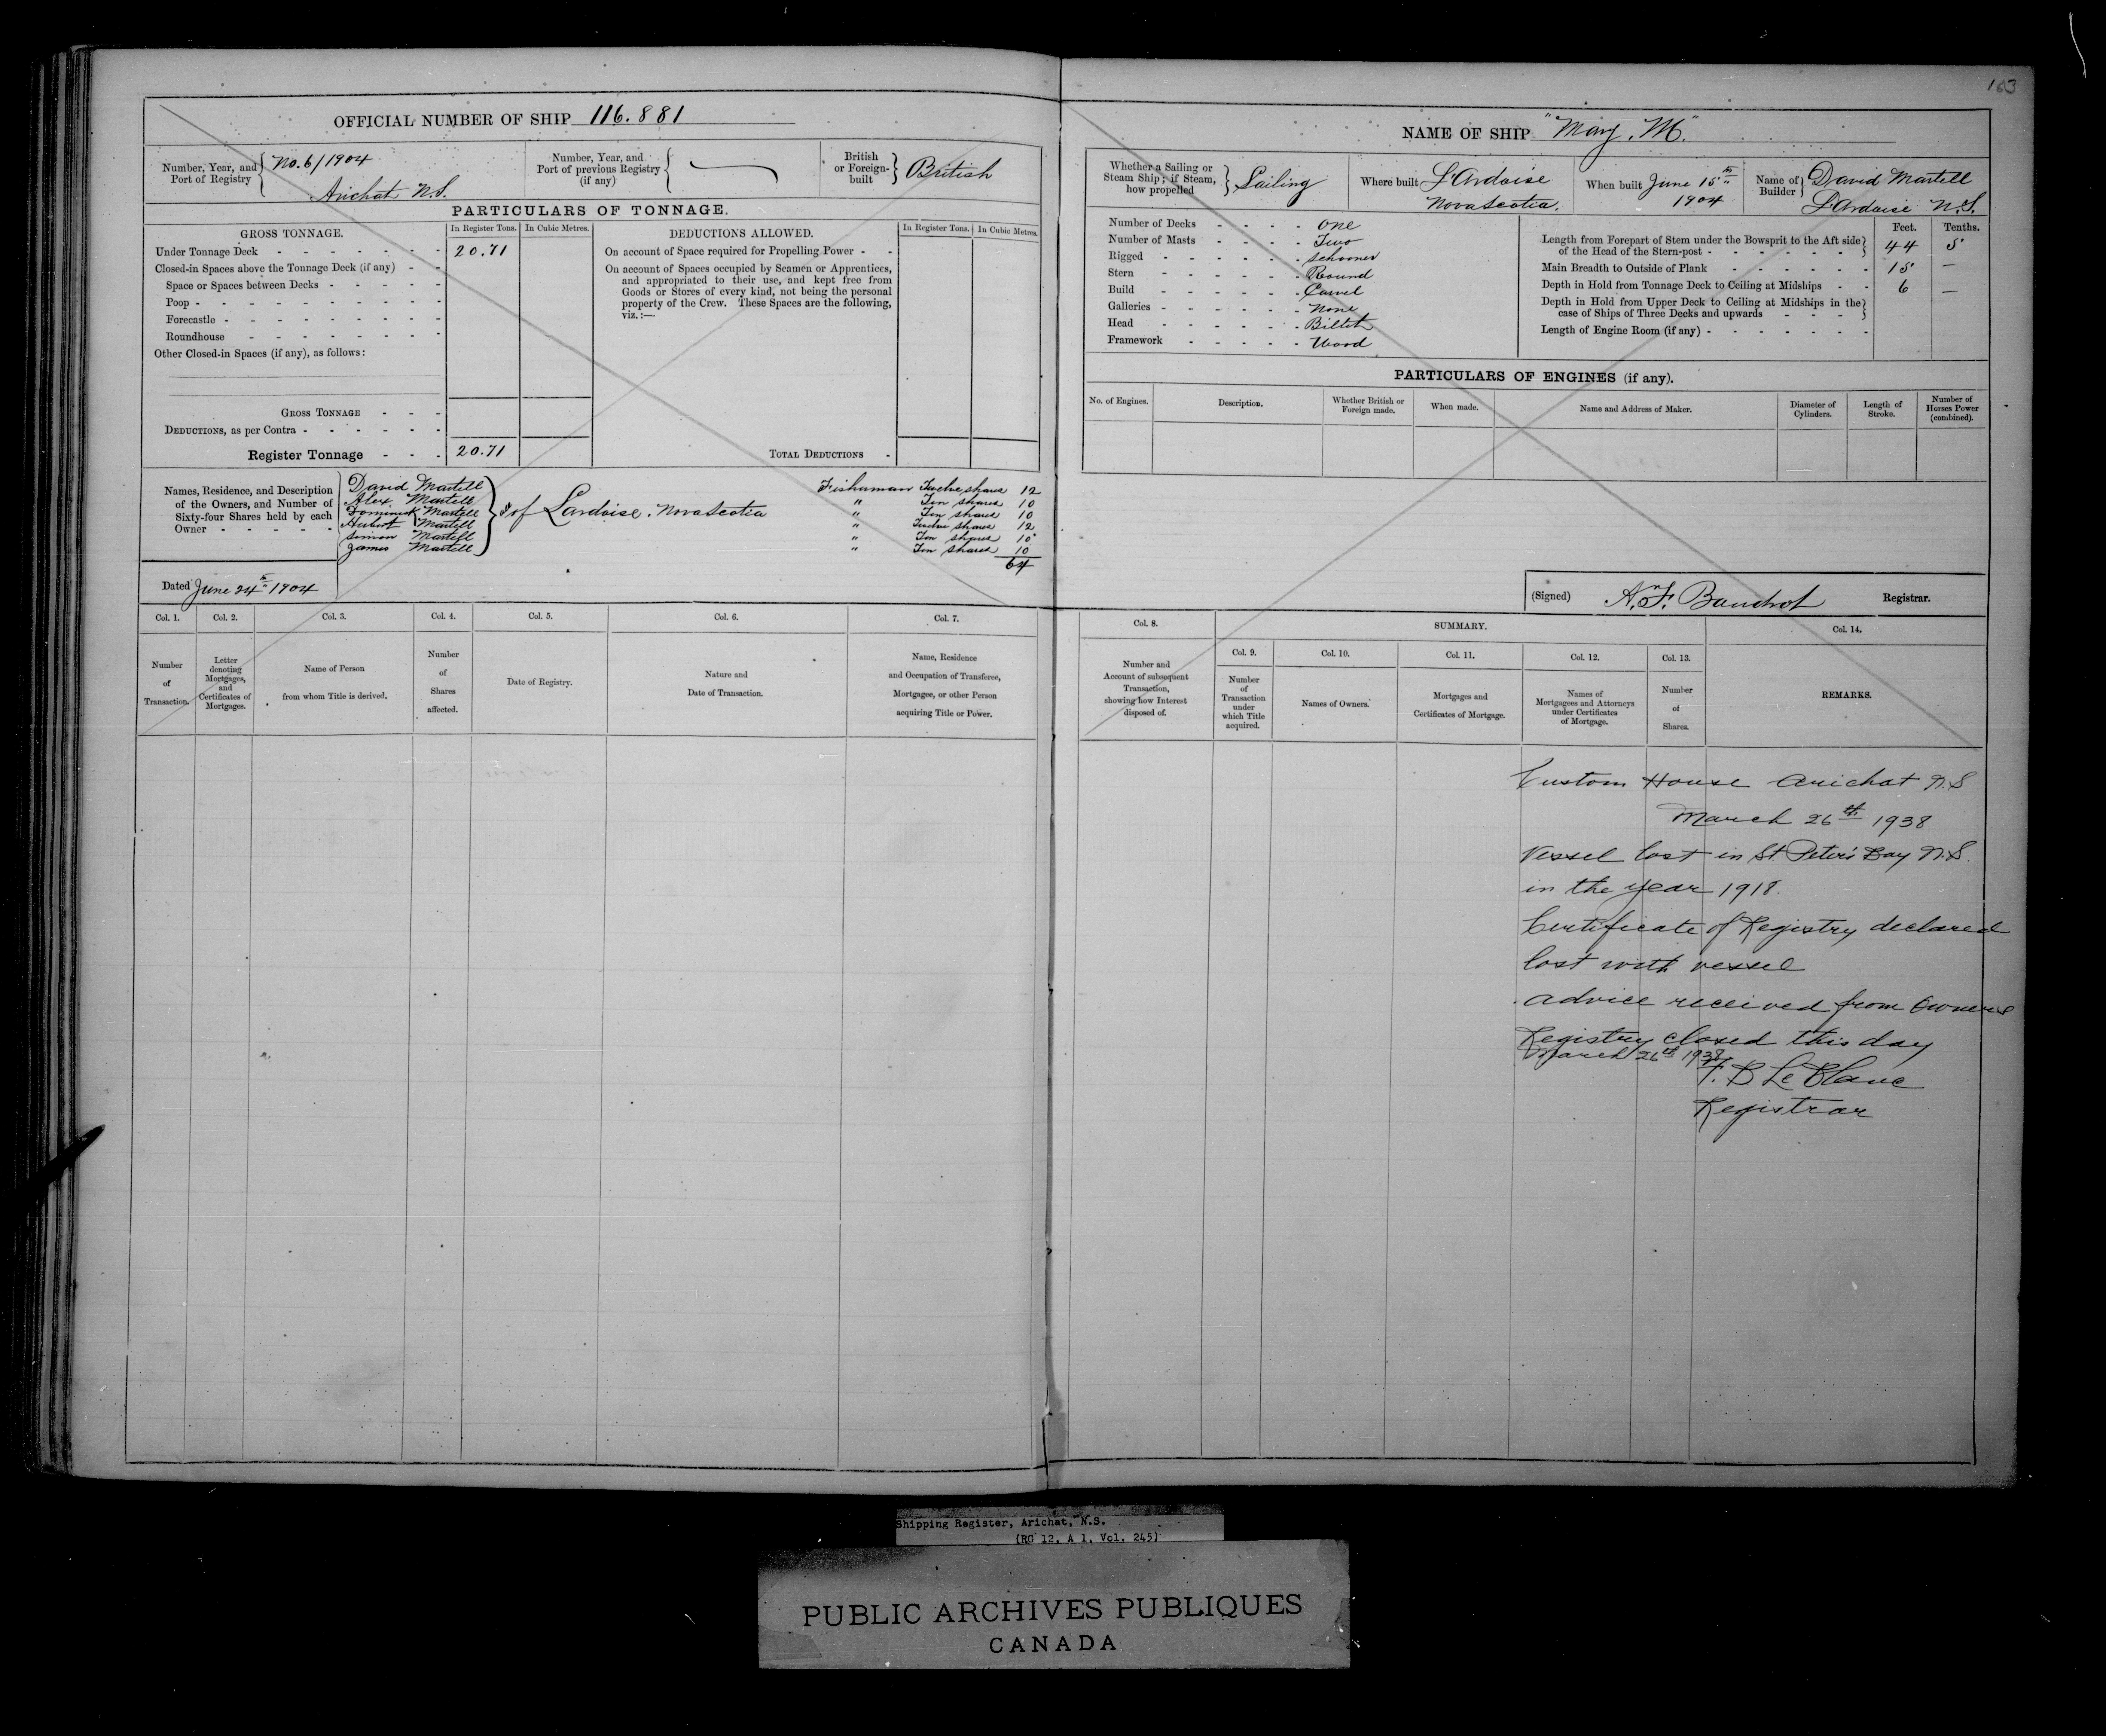 163
OFFICIAL NUMBER OF SHIP 116.881
Number, Year, and Port of Registry
No. 6/1904
Arichat N.S.
Number, Year, and Port of previous Registry (if any)
British or Foreign-built
British
PARTICULARS OF TONNAGE.
GROSS TONNAGE.
In Register Tons.
In Cubic Metres.
DEDUCTIONS ALLOWED.
In Register Tons.
In Cubic Metres.
Under Tonnage Deck 20.71
Closed-in Spaces above the Tonnage Deck (if any)
Space or Spaces between Decks
Poop
Forecastle
Roundhouse
Other Closed-in Spaces (if any), as follows:
GROSS TONNAGE
DEDUCTIONS, as per Contra
Register Tonnage 20.71
On account of Space required for Propelling Power
On account of Spaces occupied by Seamen or Apprentices,
and appropriated to their use, and kept free from
Goods or Stores of every kind, not being the personal
property of the Crew. These Spaces are the following,
viz.:—
TOTAL DEDUCTIONS
Names, Residence, and Description
of the Owners, and Number of
Sixty-four Shares held by each
Owner
David Martell
Alex Martell
Dominick Martell
Hubert Martell
Simon Martell
James Martell
of Lardoise. Nova Scotia
Fisherman Twelve shares 12
" Ten shares 10
" Ten shares 10
" Twelve shares 12
" Ten shares 10
" Ten shares 10
64
Dated June 24th 1904
Col. 1.
Number
of
Transaction.
Col. 2.
Letter
denoting
Mortgages,
and
Certificates of
Mortgages.
Col. 3.
Name of Person
from whom Title is derived.
Col. 4.
Number
of
Shares
affected.
Col. 5.
Date of Registry.
Col. 6.
Nature and
Date of Transaction.
Col. 7.
Name, Residence
and Occupation of Transferee,
Mortgagee, or other Person
acquiring Title or Power.
NAME OF SHIP "Mary. M."
Whether a Sailing or
Steam Ship; if Steam,
how propelled
Sailing
Where built
L'Ardoise
Nova Scotia.
When built
June 15th
1904
Name of Builder
David Martell
L'Ardoise N.S.
Number of Decks One
Number of Masts Two
Rigged Schooner
Stern Round
Build Carvel
Galleries None
Head Billet
Framework Wood
Feet. Tenths.
Length from Forepart of Stem under the Bowsprit to the Aft side
of the Head of the Stern-post 44 5
Main Breadth to Outside of Plank 15 —
Depth in Hold from Tonnage Deck to Ceiling at Midships 6 —
Depth in Hold from Upper Deck to Ceiling at Midships in the
case of Ships of Three Decks and upwards
Length of Engine Room (if any)
PARTICULARS OF ENGINES (if any).
No. of Engines.
Description.
Whether British or
Foreign made.
When made.
Name and Address of Maker.
Diameter of
Cylinders.
Length of
Stroke.
Number of
Horses Power
(combined).
(Signed) Registrar.
Col. 8.
Number and
Account of subsequent
Transaction,
showing how Interest
disposed of.
SUMMARY.
Col. 9.
Number
of
Transaction
under
which Title
acquired.
Col. 10.
Names of Owners.
Col. 11.
Mortgages and
Certificates of Mortgage.
Col. 12.
Names of
Mortgagees and Attorneys
under Certificates
of Mortgage.
Col. 13.
Number
of
Shares.
Col. 14.
REMARKS.
Custom House Arichat N.S
March 26th 1938
Vessel lost in St Peter's Bay N.S.
in the year 1918.
Certificate of Registry declared
lost with vessel
advice received from Owners
Registry closed this day
March 26th 1938
F. B Le Blanc
Registrar
Shipping Register, Arichat, N.S.
(RG 12, A 1, Vol. 245)
PUBLIC ARCHIVES PUBLIQUES
CANADA